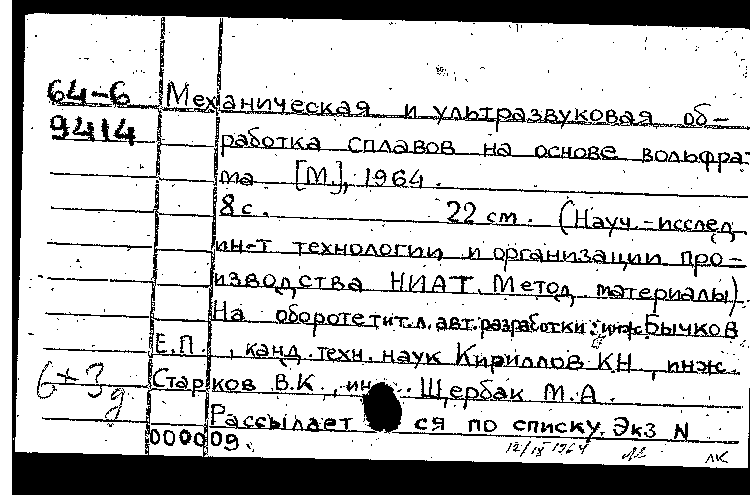 64-6 Механическая и ультразвуковая об-
9414 работка сплавов на основе вольфра-
ма [М.], 1964.
8 с. 22 см. (Науч.-исслед.
ин-т технологии и организации про-
изводства НИАТ. Метод. материалы).
На обороте тит. л. авт. разработки: инж Бычков
Е.П., канд. техн. наук Кириллов К.Н, инж.
6+3д Старков В.К., Щербак М.А.
Рассылает ся по списку. Экз N
000009.
12/IX 1964 ЛК